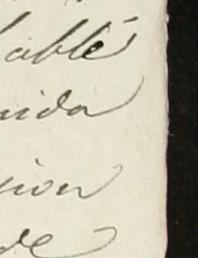 hablé
nida
sion
de